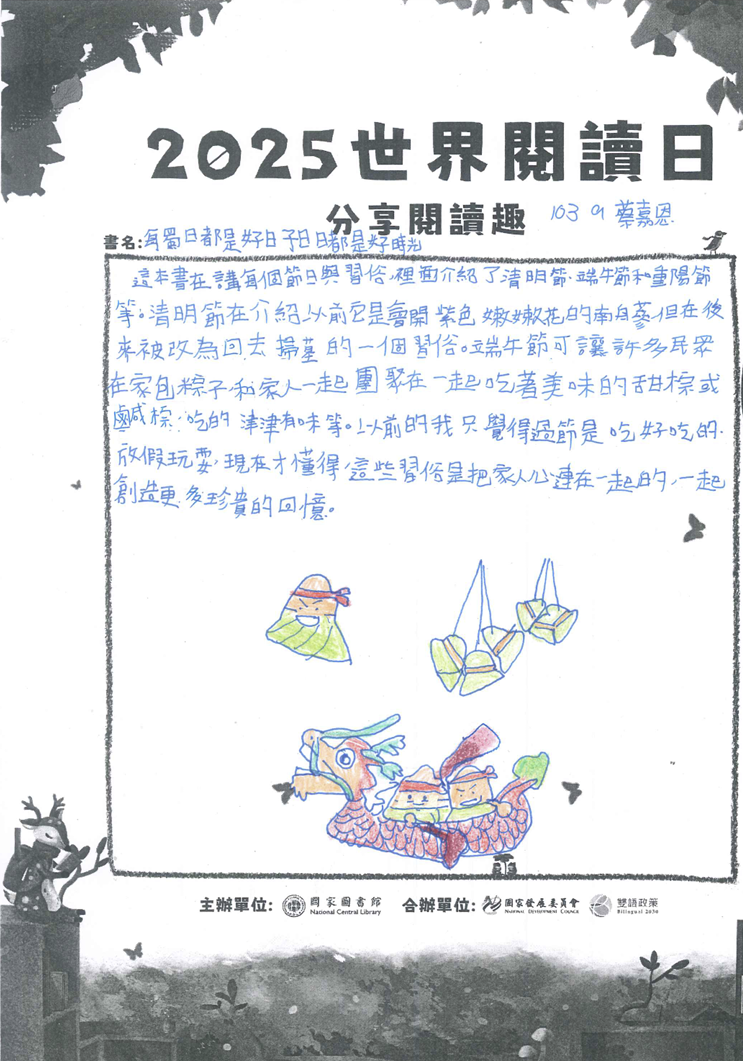 2025世界閱讀日
分享閱讀趣 103 9 蔡嘉恩
書名:每 日都是好日子日日都是好時光
這本書在講每個節日與習俗,裡面介紹了清明節、端午節和重陽節
等。清明節在介紹以前它是會開紫色嫩嫩花的 但在後
來被改為回去掃墓的一個習俗。端午節可讓許多民眾
在家包粽子和家人一起團聚在一起吃著美味的甜粽或
鹹粽,吃的津津有味等。以前的我只覺得過節是吃好吃的、
放假玩耍,現在才懂得,這些習俗是把家人心連在一起的,一起
創造更多珍貴的回憶。
主辦單位: 國家圖書館 National Central Library 合辦單位: 國家發展委員會 NATIONAL DEVELOPMENT COUNCIL 雙語政策 Bilingual 2030